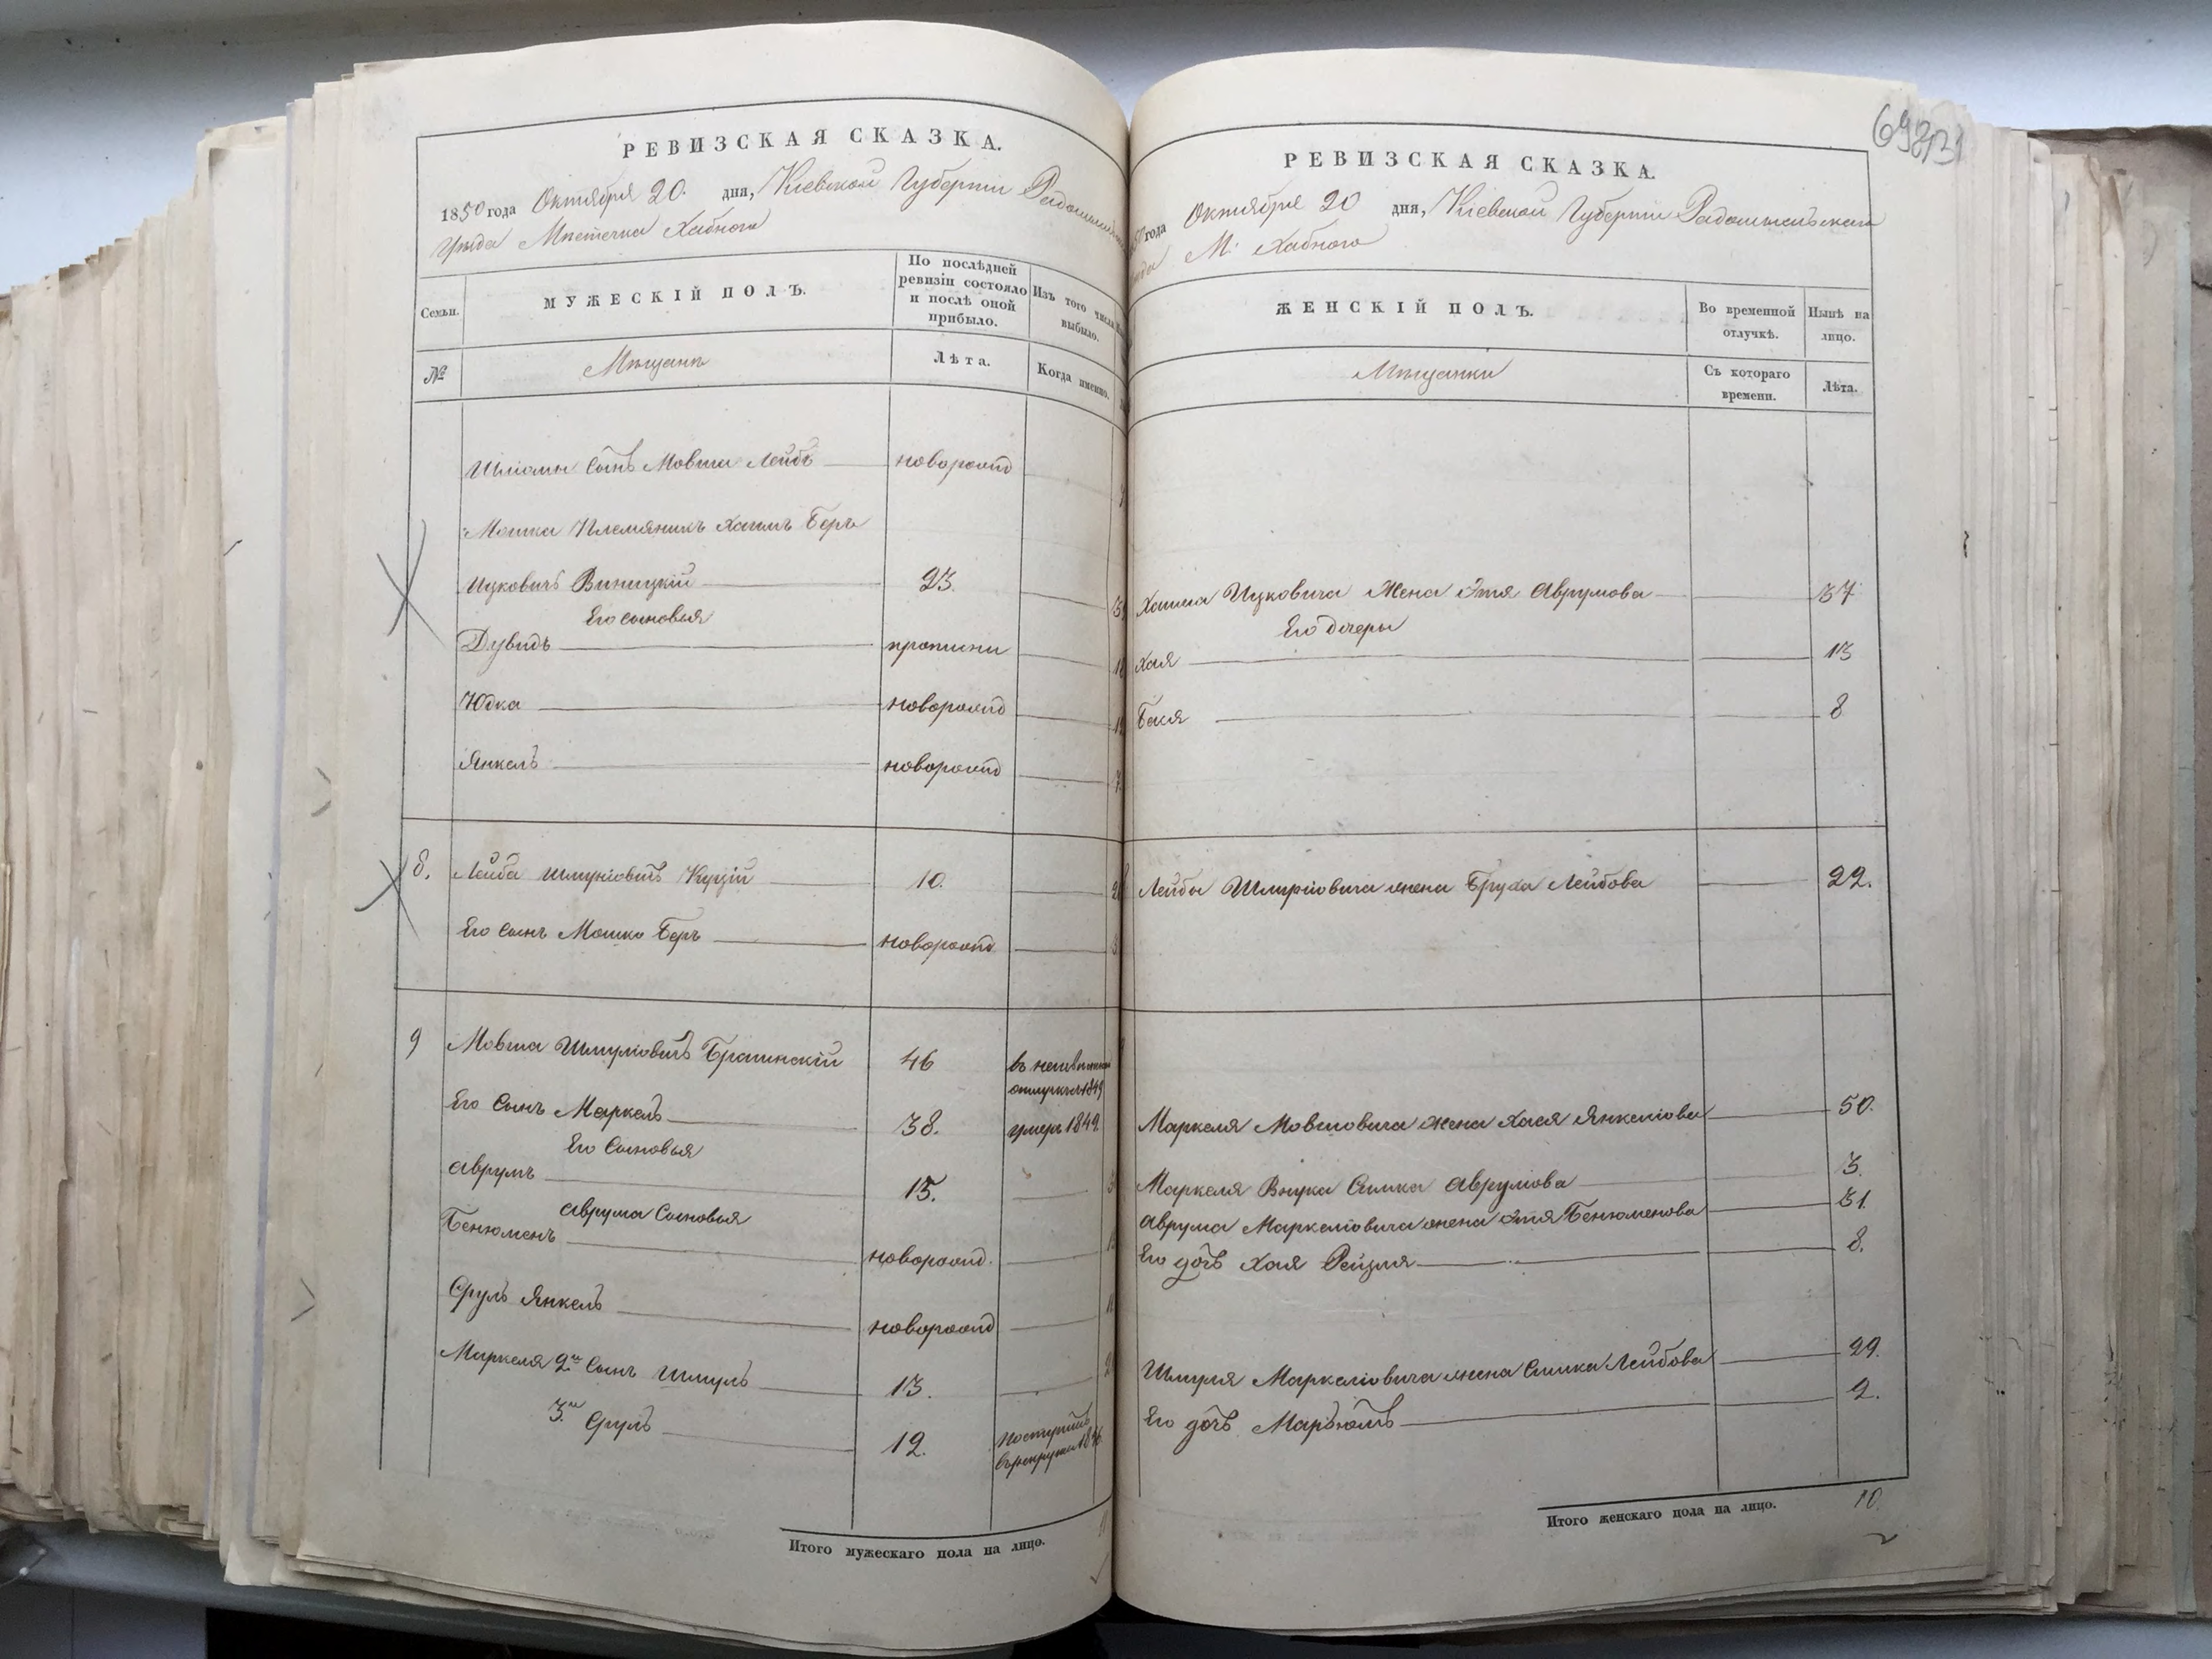 РЕВИЗСКАЯ СКАЗКА.
1850 года Октября 20. дня, Кіевской Губерніи
Уезда Местечка Хабного
Семьи.
МУЖЕСКІЙ ПОЛЪ.
По послѣдней ревизіи состояло и послѣ оной прибыло.
Изъ того числа выбыло.
№
Мещане
Лѣта.
Когда именно.
сынъ Мовша Лейба новорожд
Мошка Племяникъ Хаимъ Беръ
Ицковичъ Виницкій 23.
Его сыновья
Дувидъ
Юдка новорожд
Янкель новорожд
8. Лейба 10.
Его сынъ Мошко Беръ новорожд
9 Мовша Шмуліовичъ Брагинскій 46
1849
Его Сынъ Маркель 38. умеръ 1849
Его Сыновья
Аврумъ 15.
Аврума Сыновья
Бенюменъ новорожд.
Сруль Янкель новорожд
Маркеля 2й Сынъ Шмуль 13.
3й Сруль 12.
Итого мужескаго пола на лицо.
РЕВИЗСКАЯ СКАЗКА.
698
года Октября 20 дня, Кіевской Губерніи Радомысльскаго
М. Хабного
ЖЕНСКІЙ ПОЛЪ.
Во временной отлучкѣ.
Нынѣ на лицо.
Мещанки
Съ котораго времени.
Лѣта.
Хаима Ицковича Жена Этя Аврумова 37
Его дочери
Хая 13
Бася 8
Лейбы жена Лейбова 22.
Маркеля Мовшовича жена Хася Янкеліова 50.
Маркеля Внука Симка Аврумова 3.
Аврума Маркеліовича жена Этя Бенюменова 31.
Его дочь Хая Рейзля 8.
Шмуля Маркеліовича жена Симка Лейбова 29.
Его дочь 2.
Итого женскаго пола на лицо. 10.